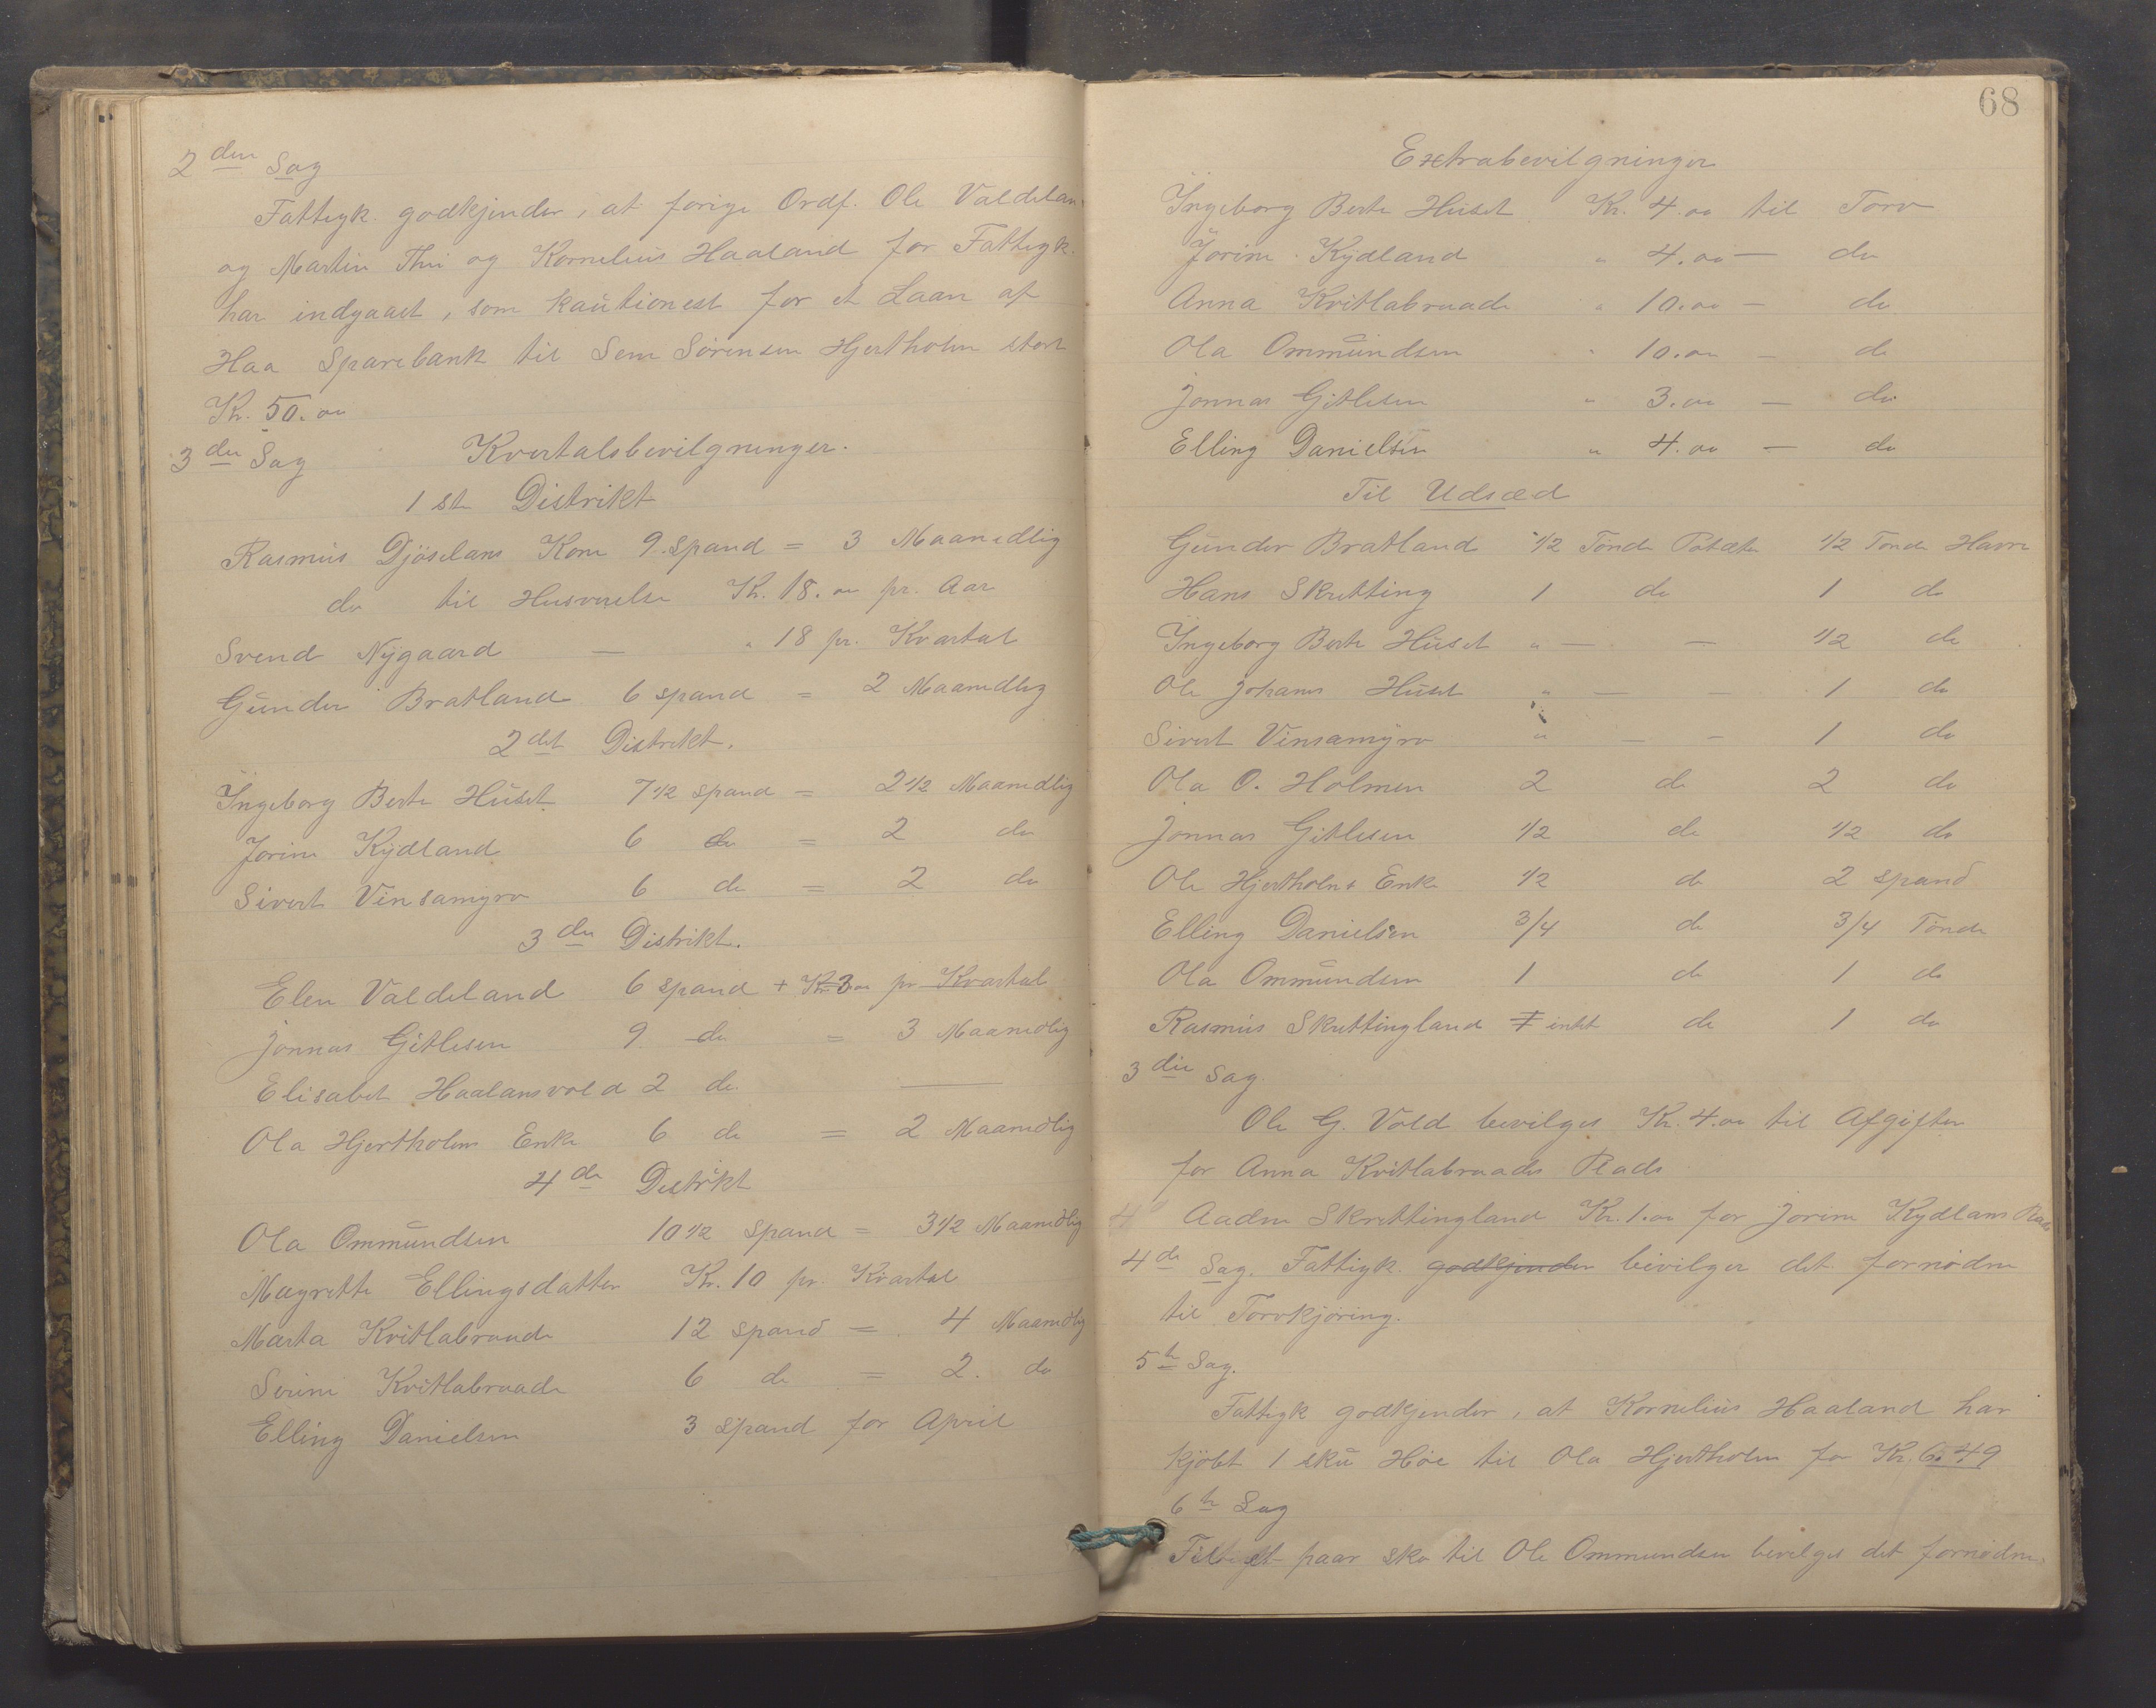 2den Sag
Fattigk. godkjender, at forige Ordf. Ole Valdelan
og Martin Thu og Kornelius Haaland for Fattigk.
har indgaaet, som kautionest for et Laan af
Haa Sparebank til Sem Sørensen Hjertholm stort
Kr. 50.oo
3die Sag Kvertalsbevilgninger.
1ste Distrikt
Rasmus Djöselans Kone 9 Spand = 3 Maanedlig
do til Husværelse Kr. 18.oo pr. Aar
Svend Nygaard — " 18 pr. Kvartal
Gunder Bratland 6 spand = 2 Maanedlig
2det Distrikt.
Ingeborg Berte Huset 7 1/2 spand = 2 1/2 Maanedlig
Jorine Kydland 6 do = 2 do
Sivert Vinsamyro 6 do = 2 do
3die Distrikt.
Elen Valdeland 6 spand + Kr 3.oo pr Kvartal
Jonnas Gitlesen 9 do = 3 Maanedlig
Elisabet Haalansvold 2 do. —
Ola Hjertholms Enke 6 do = 2 Maanedlig
4de Distrikt
Ola Ommundsen 10 1/2 spand = 3 1/2 Maanedlig
Magrette Ellingsdatter Kr. 10 pr. Kvartal
Marta Kvitlabraade 12 spand = 4 Maanedlig
Serine Kvitlabraade 6 do = 2. do
Elling Danielsen 3 spand for April
68
Extrabevilgninger
Ingeborg Berte Huset Kr. 4.oo til Torv
Jorine Kydland " 4.oo — do
Anna Kvitlabraade " 10.oo — do
Ola Ommundsen " 10.oo — do
Jonnas Gitlesen " 3.oo — do
Elling Danielsen " 4.oo — do
Til Udsæd
Gunder Bratland 1/2 Tönde Potæte 1/2 Tönde Havre
Hans Skretting 1 do 1 do
Ingeborg Berte Huset " — — 1/2 do
Ole Johans Huset " — — 1 do
Sivert Vinsamyro " — — 1 do
Ola O. Holmen 2 do 2 do
Jonnas Gitlesen 1/2 do 1/2 do
Ole Hjertholms Enke 1/2 do 2 spand
Elling Danielsen 3/4 do 3/4 Tönde
Ola Ommundsen 1 do 1 do
Rasmus Skrettingland 1 intet do 1 do
3die Sag.
Ole G. Vold bevilges Kr. 4.oo til Afgiften
for Anna Kvitlabraades Plads
4 Aadne Skrettingland Kr. 1.oo for Jorine Kydlans Plads
4de Sag. Fattigk. godkjender bevilger det fornödne
til Torvkjöring.
5te Sag.
Fattigk godkjender, at Kornelius Haaland har
kjöbt 1 sku Höe til Ola Hjertholm for Kr. 6.49
6te Sag
Til et paar sko til Ole Ommundsen bevilges det fornödne.